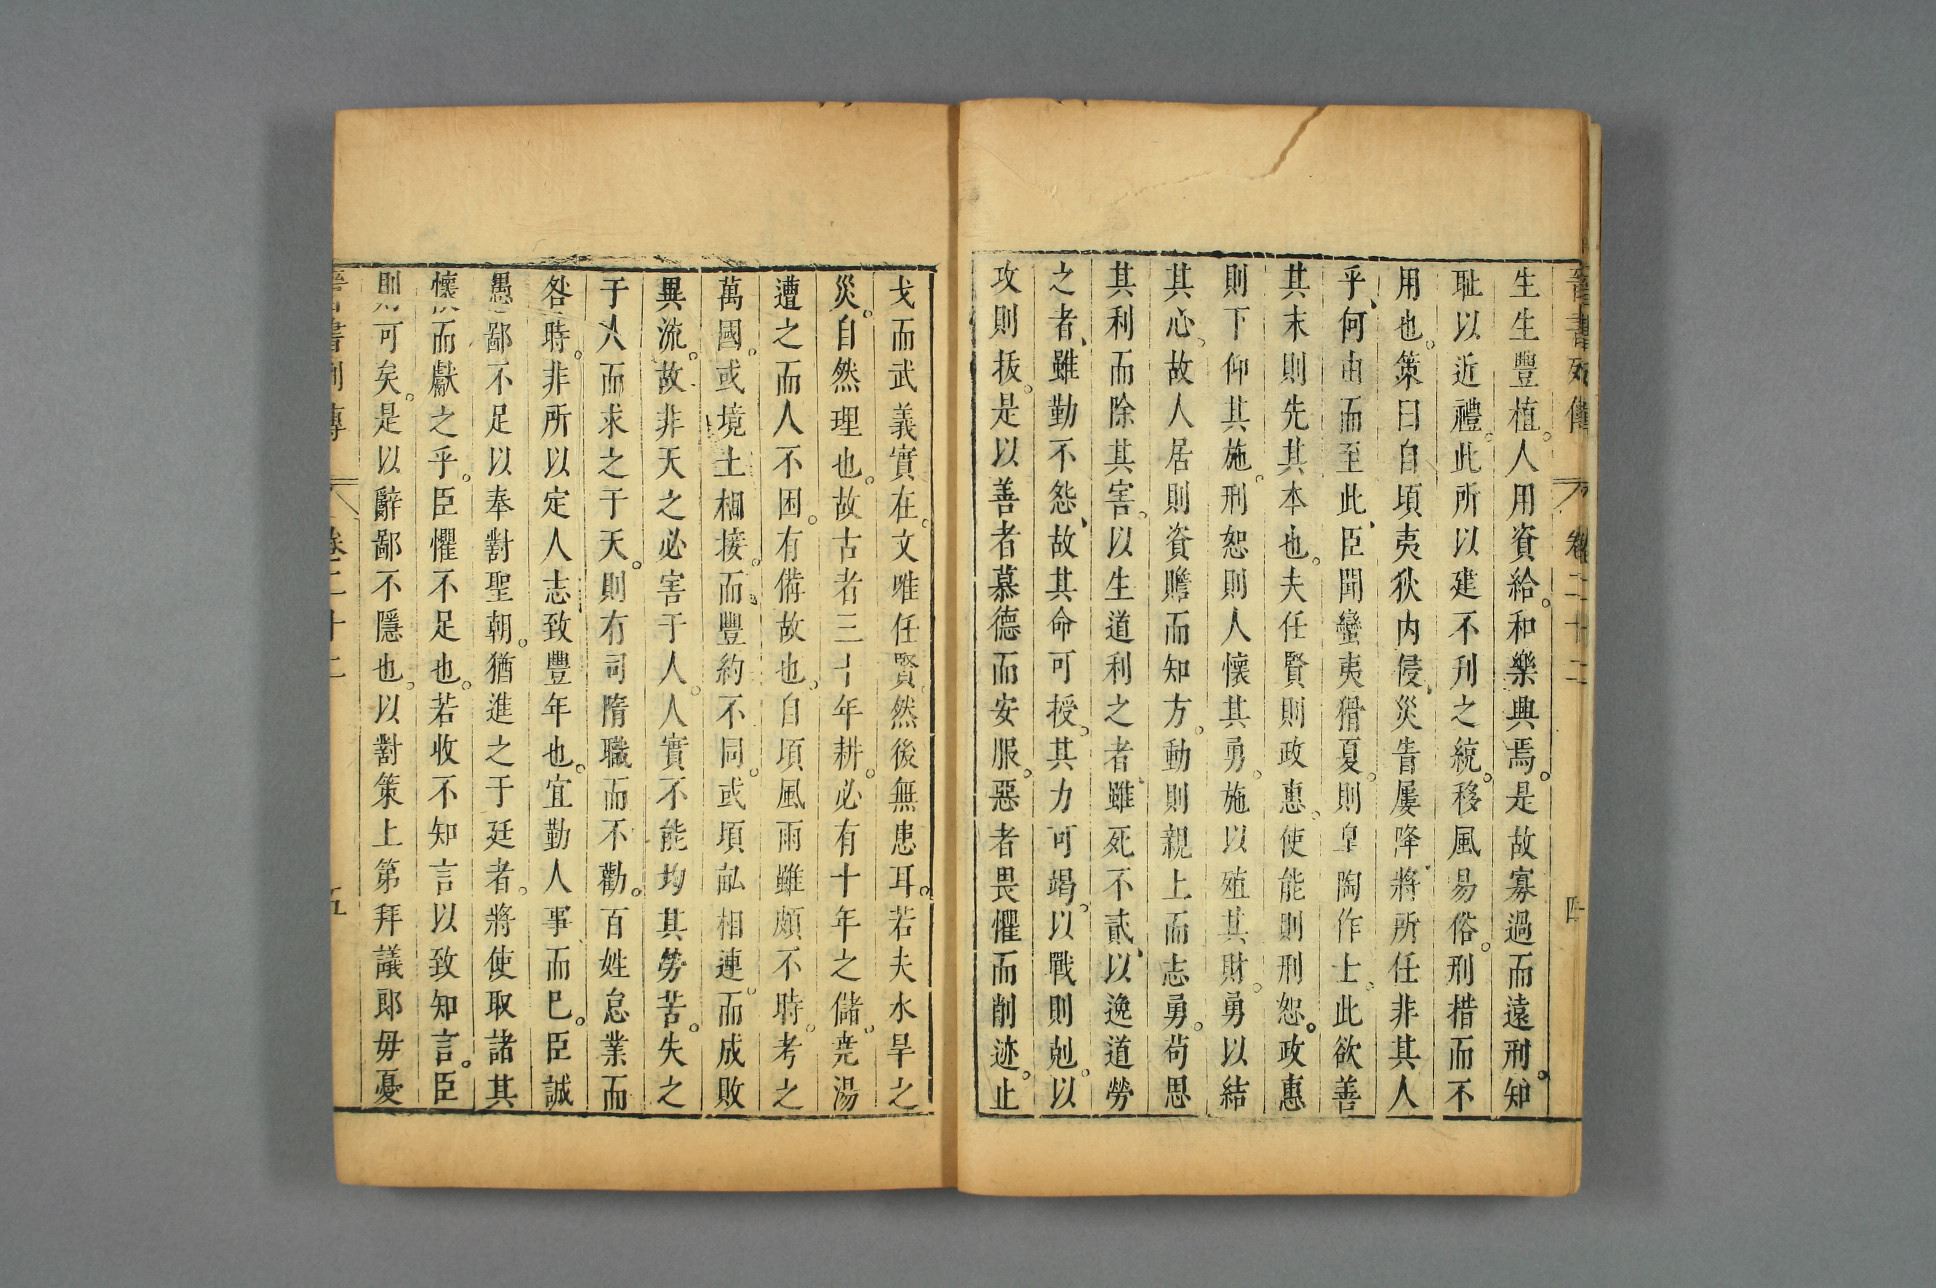 晉書列傳 卷二十二 四
生生豐植。人用資給。和樂興焉。是故寡過而遠刑。知
耻以近禮。此所以建不刋之統。移風易俗。刑措而不
用也。策曰自頃夷狄内侵、災眚屢降、將所任非其人
乎、何由而至此、臣聞蠻夷猾夏。則皐陶作士。此欲善
其末則先其本也。夫任賢則政惠。使能則刑恕。政惠
則下仰其施。刑恕則人懷其勇。施以殖其財。勇以結
其心。故人居則資贍而知方。動則親上而志勇。茍思
其利而除其害。以生道利之者、雖死不貳、以逸道勞
之者、雖勤不怨、故其命可授。其力可竭。以戰則剋。以
攻則拔。是以善者慕德而安服。惡者畏懼而削迹。止
戈而武義實在。文唯任賢。然後無患耳。若夫水旱之
災。自然理也。故古者三十年耕。必有十年之儲。堯湯
遭之而人不困。有備故也。自頃風雨雖頗不時。考之
萬國。或境土相接。而豐約不同。或頃畆相連。而成敗
異流。故非天之必害于人。人實不能均其勞苦。失之
于人而求之于天。則有司隋職而不勸。百姓怠業而
咎時。非所以定人志致豐年也。宜勤人事而已。臣誠
愚鄙不足以奉對聖朝。猶進之于廷者。將使取諸其
懷而獻之乎。臣懼不足也。若收不知言以致知言。臣
則可矣。是以辭鄙不隱也。以對策上第拜議郎毋憂
晉書列傳 卷二十二 五